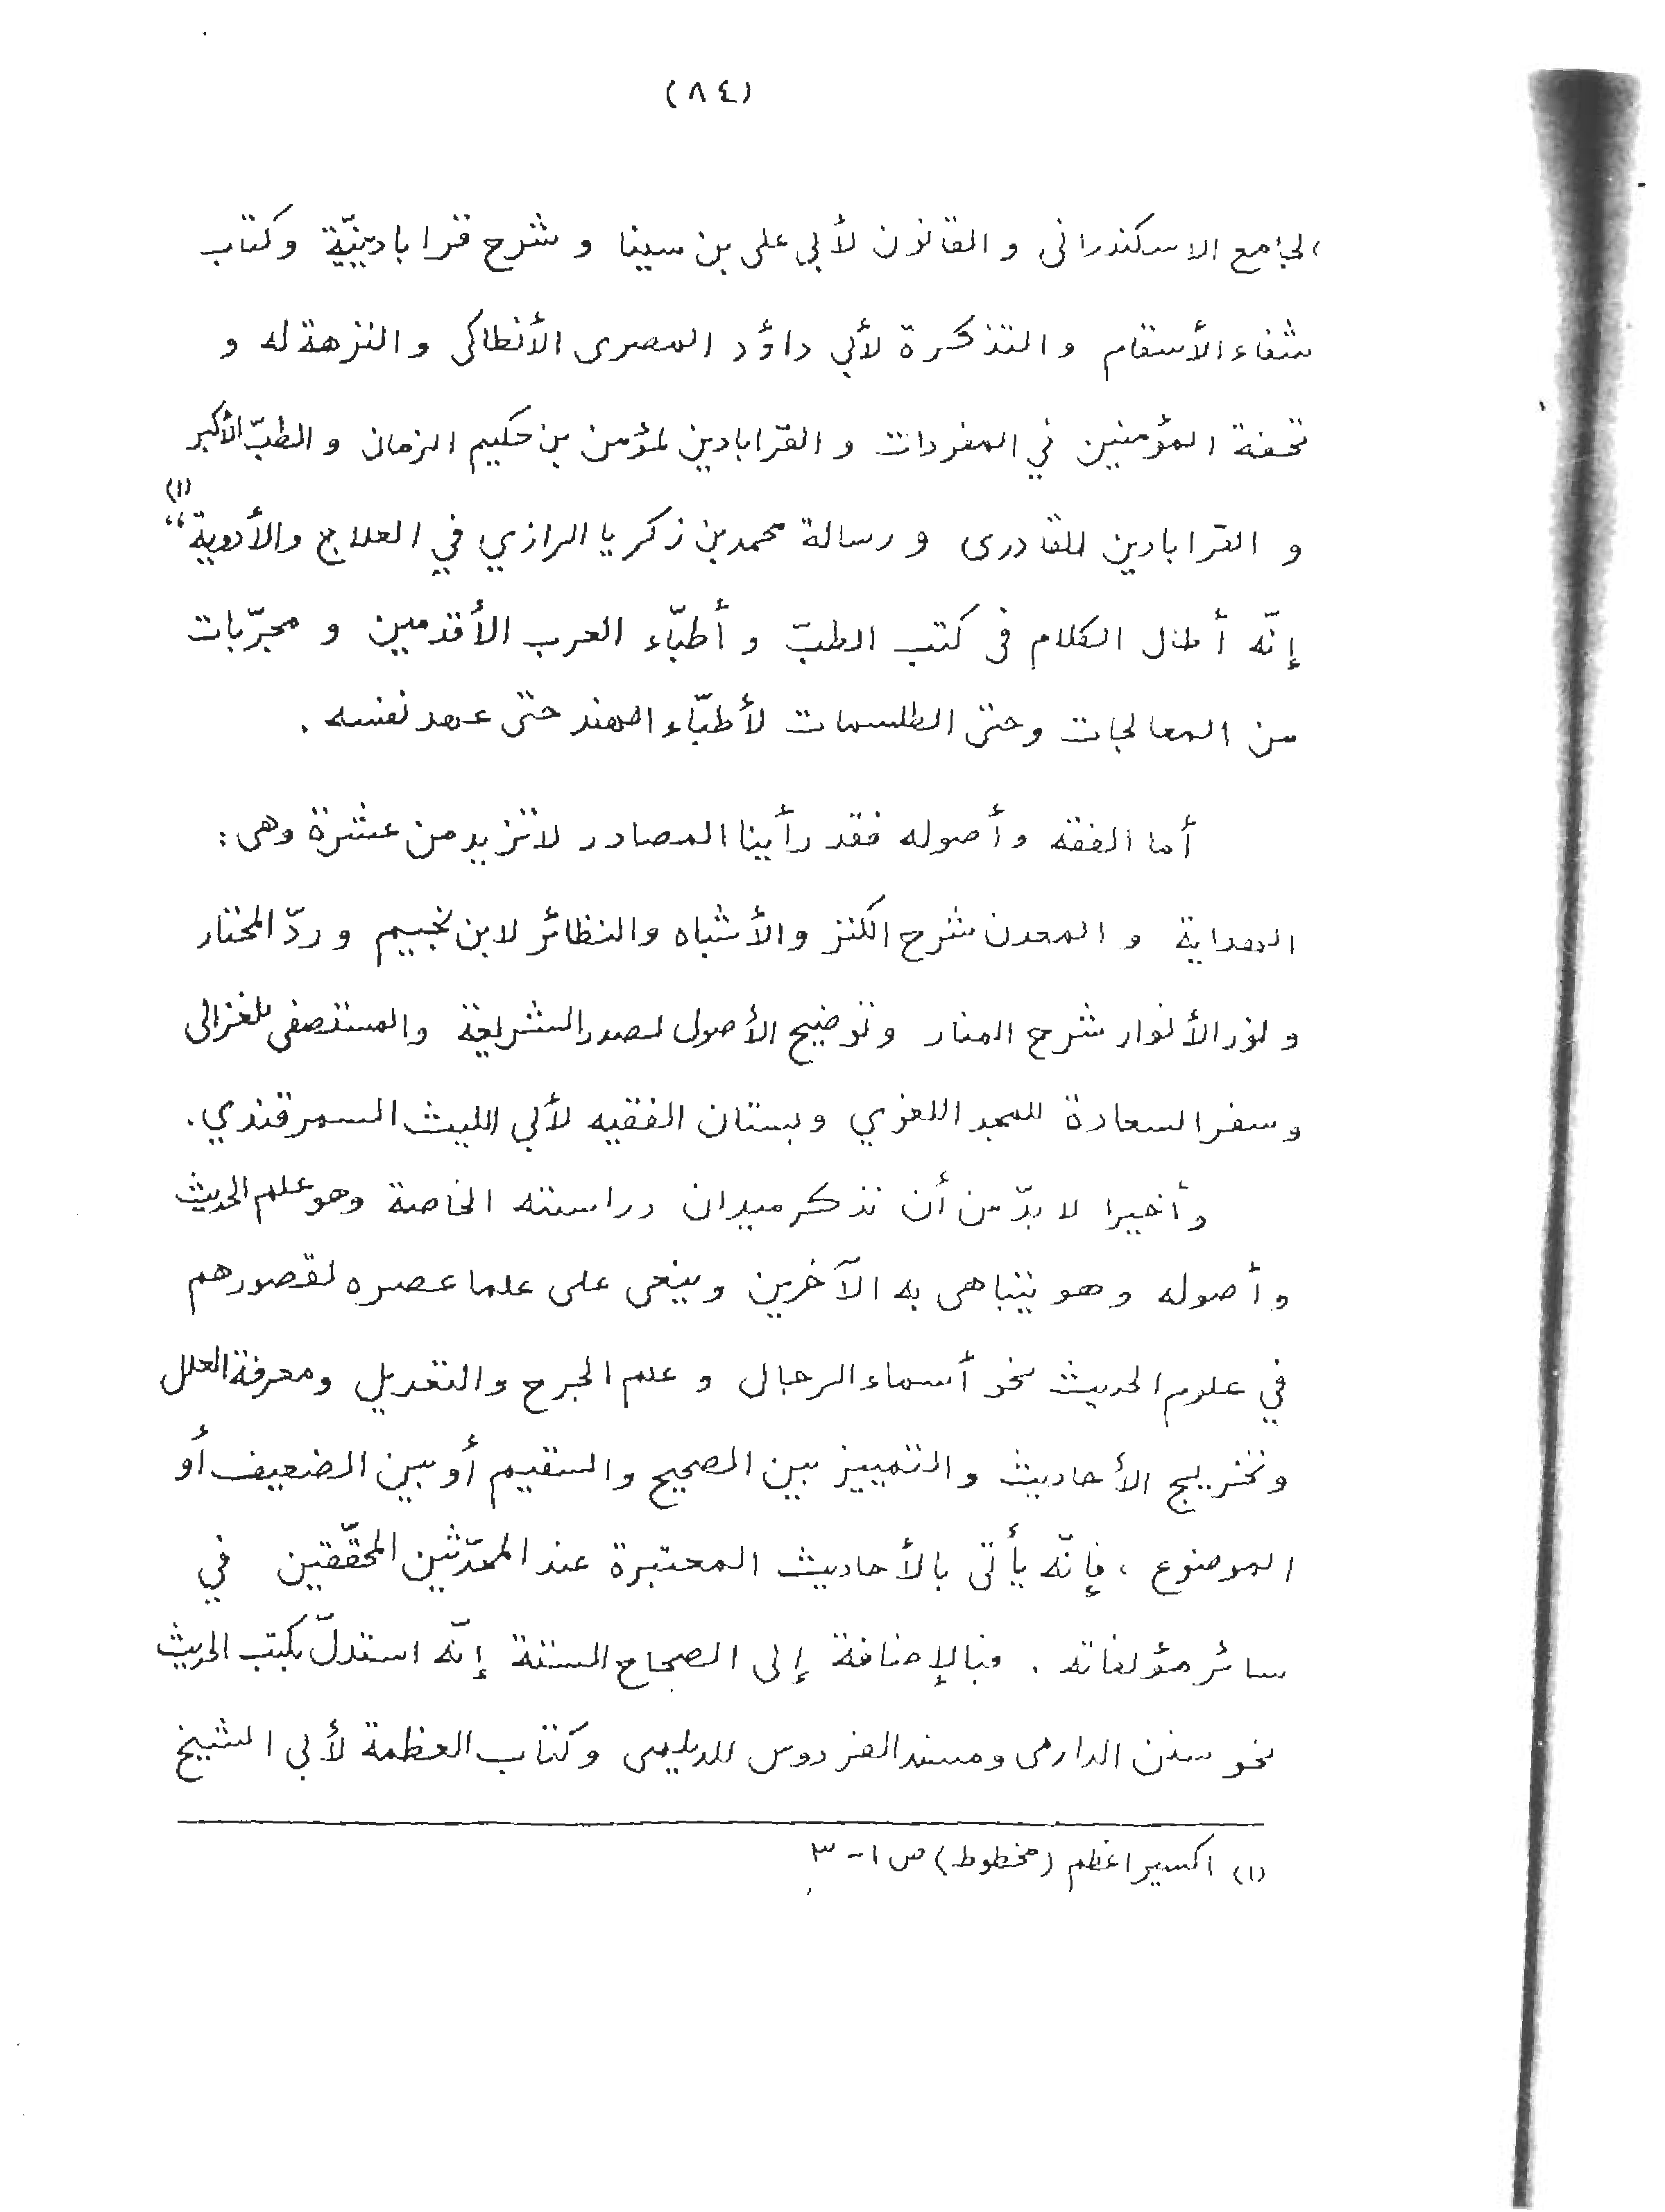 (٨٤)
الجامع الاسكندرانى و القانون لأبى على بن سينا و شرح قرابادينيّة وكتاب
شفاء الأسقام و التذكرة لأبي داؤد المصرى الأنطاكى و النزهة له و
تحفة المؤمنين في المفردات و القرابادين لمؤمن بن حكيم الزمان و الطبّ الأكبر
و القرابادين للقادرى و رسالة محمد بن زكريا الرازي في العلاج والأدوية“ (١)
إنّه أطال الكلام فى كتب الطبّ و أطبّاء العرب الأقدمين و مجرّبات
من المعالجات وحتى الطلسمات لأطبّاء الهند حتى عهد نفسه .
أما الفقه وأصوله فقد رأينا المصادر لا تزيد من عشرة وهى :
الهداية و المعدن شرح الكنز والأشباه والنظائر لابن نجيم وردّ المختار
و نور الأنوار شرح المنار وتوضيح الأصول لصدر الشريعة والمستصفى للغزالى
وسفر السعادة للمجد اللغوي وبستان الفقيه لأبى الليث السمرقندي .
وأخيرا لا بدّ من أن نذكر ميدان دراسته الخاصة وهو علم الحديث
وأصوله وهو يتباهى به الآخرين وينعى على علما عصره لقصورهم
في علوم الحديث نحو أسماء الرجال و علم الجرح والتعديل ومعرفة العلل
وتخريج الأحاديث والتمييز بين الصحيح والسقيم أو بين الضعيف أو
الموضوع ، فإنّه يأتى بالأحاديث المعتبرة عند المحدّثين المحقّقين في
سائر مؤلفاته . فبالإضافة إلى الصحاح الستة إنّه استدلّ بكتب الحديث
نحو سنن الدارمى ومسند الفردوس للديلمى وكتاب العظمة لأبى الشيخ
(١) اكسير اعظم (مخطوط) ص ١-٣